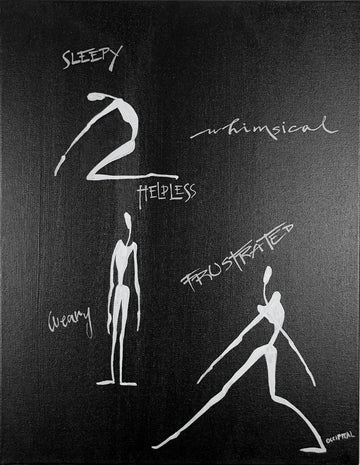 SLEEPY
whimsical
HELPLESS
FRUSTRATED
weary
OCCIPITAL